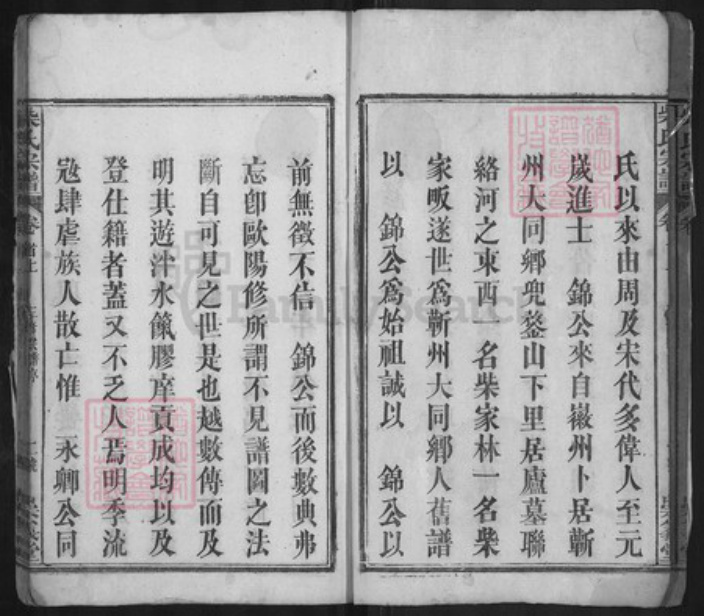 氏以來由周及宋代多偉人至元
歲進士　錦公來自徽州卜居蘄
州大同鄉兜鍪山下里居廬墓聯
絡河之東西一名柴家林一名柴
家畈遂世爲蘄州大同鄉人舊譜
以　錦公爲始祖誠以　錦公以
前無徵不信　錦公而後數典弗
忘卽歐陽修所謂不見譜圖之法
斷自可見之世是也越數傳而及
明其遊泮水餼膠庠貢成均以及
登仕籍者蓋又不乏人焉明季流
寇肆虐族人散亡惟　永卿公同
柴氏宗譜
卷首上
FamilySearch